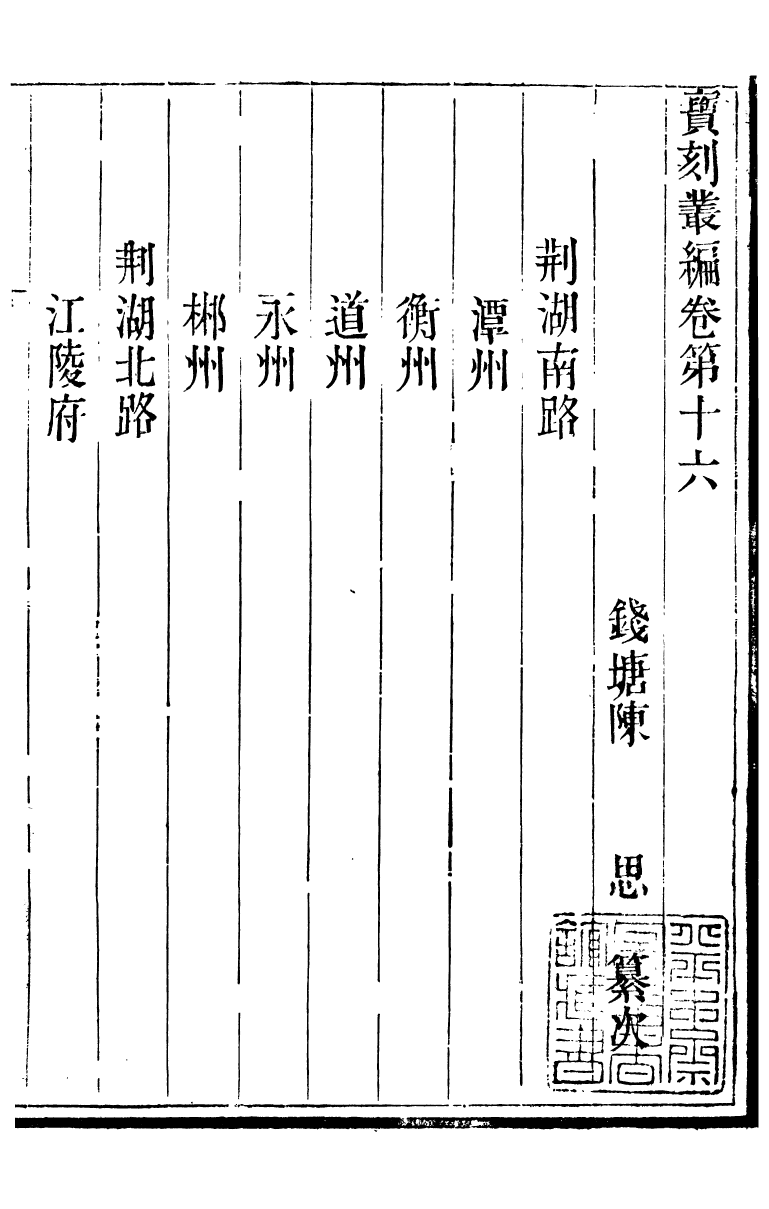 寶刻叢編卷第十六
錢塘陳　思　纂次
荆湖南路
潭州
衡州
道州
永州
郴州
荆湖北路
江陵府